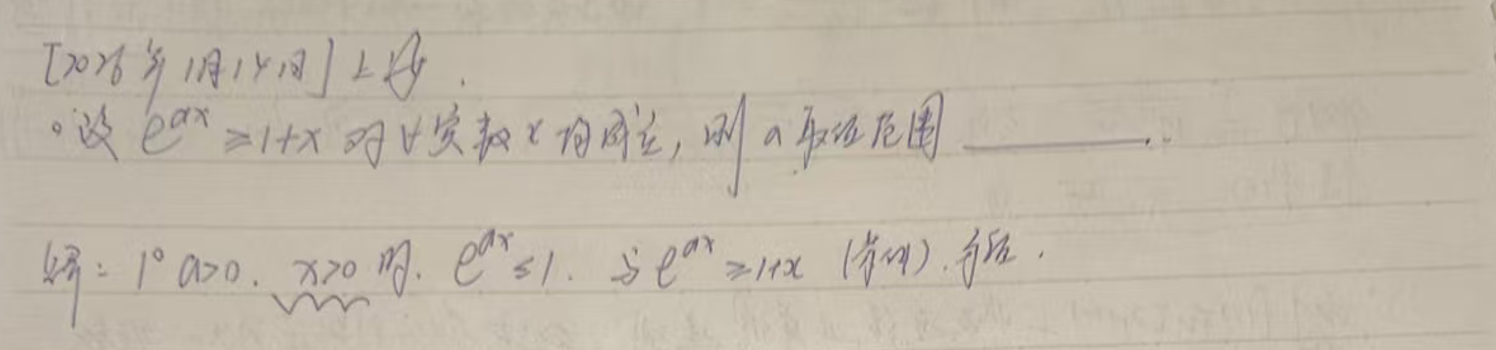 [2026年1月14日]上海.
。设 e^{ax} ≥ 1+x 对∀实数x均成立, 则 a 取值范围 ________.
解: 1° a>0. x>0 时. e^{ax} ≤ 1. 与 e^{ax} ≥ 1+x 矛盾.